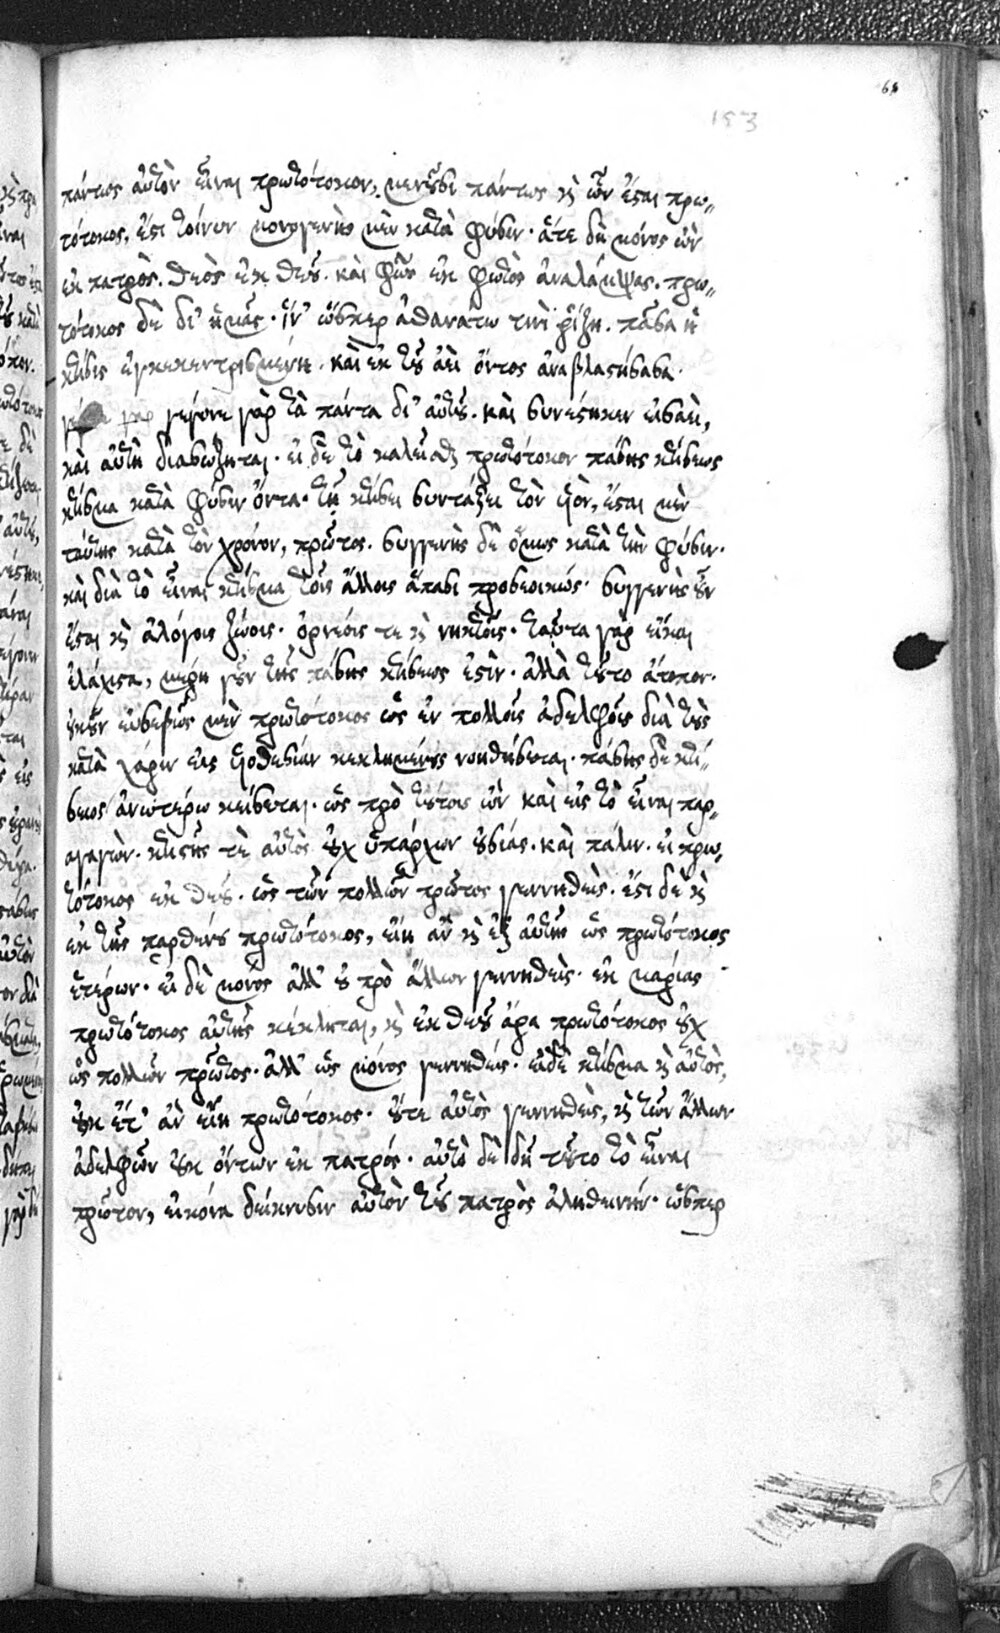 68
153
πάντως αὐτὸν εἶναι πρωτότοκον, μένουσι πάντως κὶ ὢν ἔσται πρω„
τότοκος, ἔστι τοίνυν μονογενὴς μὲν κατὰ φύσιν· ἅτε δὴ μόνος ὢν
ἐκ πατρὸς. θεὸς ἐκ θεοῦ. καὶ φῶς ἐκ φωτὸς ἀναλάμψας. πρω„
τότοκος δὲ δι' ἡμᾶς· ἵν' ὥσπερ ἀθανάτω τινὶ ῥίζη. πᾶσα ἡ
κτίσις ἐγκεκεντρισμένη. καὶ ἐκ τοῦ ἀεὶ ὄντος ἀναβλαστήσασα·
γὰρ γέγονε γὰρ τὰ πάντα δι' αὐτοῦ. καὶ συνέστηκεν εἰσαεὶ,
καὶ αὐτὴ διασώζηται. εἰ δὲ τὸ καλεῖσθαι πρωτότοκον πάσης κτίσεως
κτίσμα κατὰ φύσιν ὄντα· τῆ κτίσει συντάξει τὸν υἱὸν, ἔσται μὲν
ταύτης κατὰ τὸν χρόνον, πρῶτος. συγγενὴς δὲ ὅμως κατὰ τὴν φύσιν.
καὶ διὰ τὸ εἶναι κτίσμα τοῖς ἄλλοις ἅπασι προσεοικώς· συγγενὴς οὖν
ἔσται κὶ ἀλόγοις ζώοις· ὀρνέοις τε κὶ νηκτοῖς· ταῦτα γὰρ εἰ καὶ
ἐλάχιστα, μέρη γοῦν τῆς πάσης κτίσεως ἐστὶν· ἀλλὰ τοῦτο ἄτοπον·
οὐκοῦν εὐσεβῶς μὲν πρωτότοκος ὡς ἐν πολλοῖς ἀδελφοῖς διὰ τοὺς
κατὰ χάριν εἰς υἱοθεσίαν κεκλημένους νοηθήσεται. πάσης δὲ κτί„
σεως ἀνωτέρω κείσεται. ὡς πρὸ τούτοις ὢν καὶ εἰς τὸ εἶναι παρ„
αγαγὼν. κτίστης τὲ αὐτὸς οὐχ ὑπάρχων οὐσίας. καὶ πάλιν. εἰ πρω„
τότοκος ἐκ θεοῦ. ὡς τῶν πολλῶν πρῶτος γεννηθεὶς. ἔστι δὲ κὶ
ἐκ τῆς παρθένου πρωτότοκος, εἴη ἂν κὶ ἐξ αὐτῆς ὡς πρωτότοκος
ἑτέρων· εἰ δὲ μόνος ἀλλ' οὐ πρὸ ἄλλων γεννηθεὶς· ἐκ μαρίας
πρωτότοκος αὐτῆς κέκληται, κὶ ἐκ θεοῦ ἄρα πρωτότοκος οὐχ
ὡς πολλῶν πρῶτος· ἀλλ' ὡς μόνος γεννηθείς· εἰ δὲ κτίσμα κὶ αὐτὸς,
οὐκ ἔτ' ἂν εἴη πρωτότοκος· οὔτε αὐτὸς γεννηθεὶς, κὶ τῶν ἄλλων
ἀδελφῶν οὐκ ὄντων ἐκ πατρός· αὐτὸ δὲ δὴ τοῦτο τὸ εἶναι
πρῶτον, εἰκόνα δείκνυσιν αὐτὸν τοῦ πατρὸς ἀληθεινήν· ὥσπερ